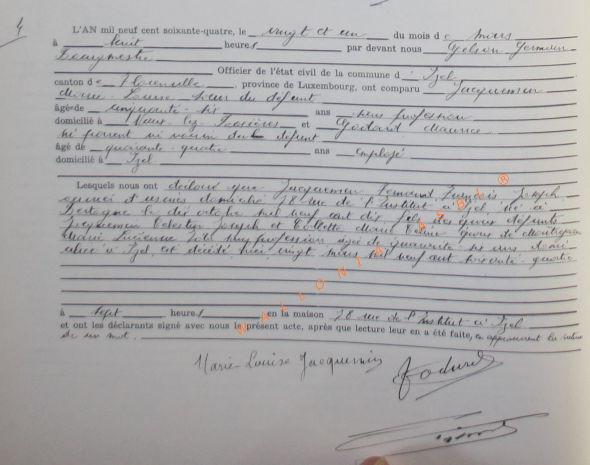 4
L'AN mil neuf cent soixante-quatre, le vingt et un du mois de mars
à huit heures par devant nous Gelson Germain
Bourgmestre
Officier de l'état civil de la commune d' Izel
canton de Florenville, province de Luxembourg, ont comparu Jacquemin
Marie Louise sœur du défunt
âgée de cinquante-six ans sans profession
domicilié à Vaux lez Rosières et Godard Maurice
ni parent ni voisin du défunt
âgé de quarante quatre ans employé
domicilié à Izel
Lesquels nous ont déclaré que Jacquemin Fernand François Joseph
domicilié 78 rue de l'Institut à Izel, né à
le dix octobre mil neuf cent dix fils des époux défunts
Jacquemin Celestin Joseph et Collette Marie époux de
Marie Lucienne profession âgée de quarante six ans domi
ciliée à Izel, est décédé hier vingt mars mil neuf cent soixante quatre
WALLONIA ASBL ®
à sept heures en la maison 78 rue de l'Institut à Izel
et ont les déclarants signé avec nous le présent acte, après que lecture leur en a été faite, en approuvant la rature
de un mot.
Marie-Louise Jacquemin